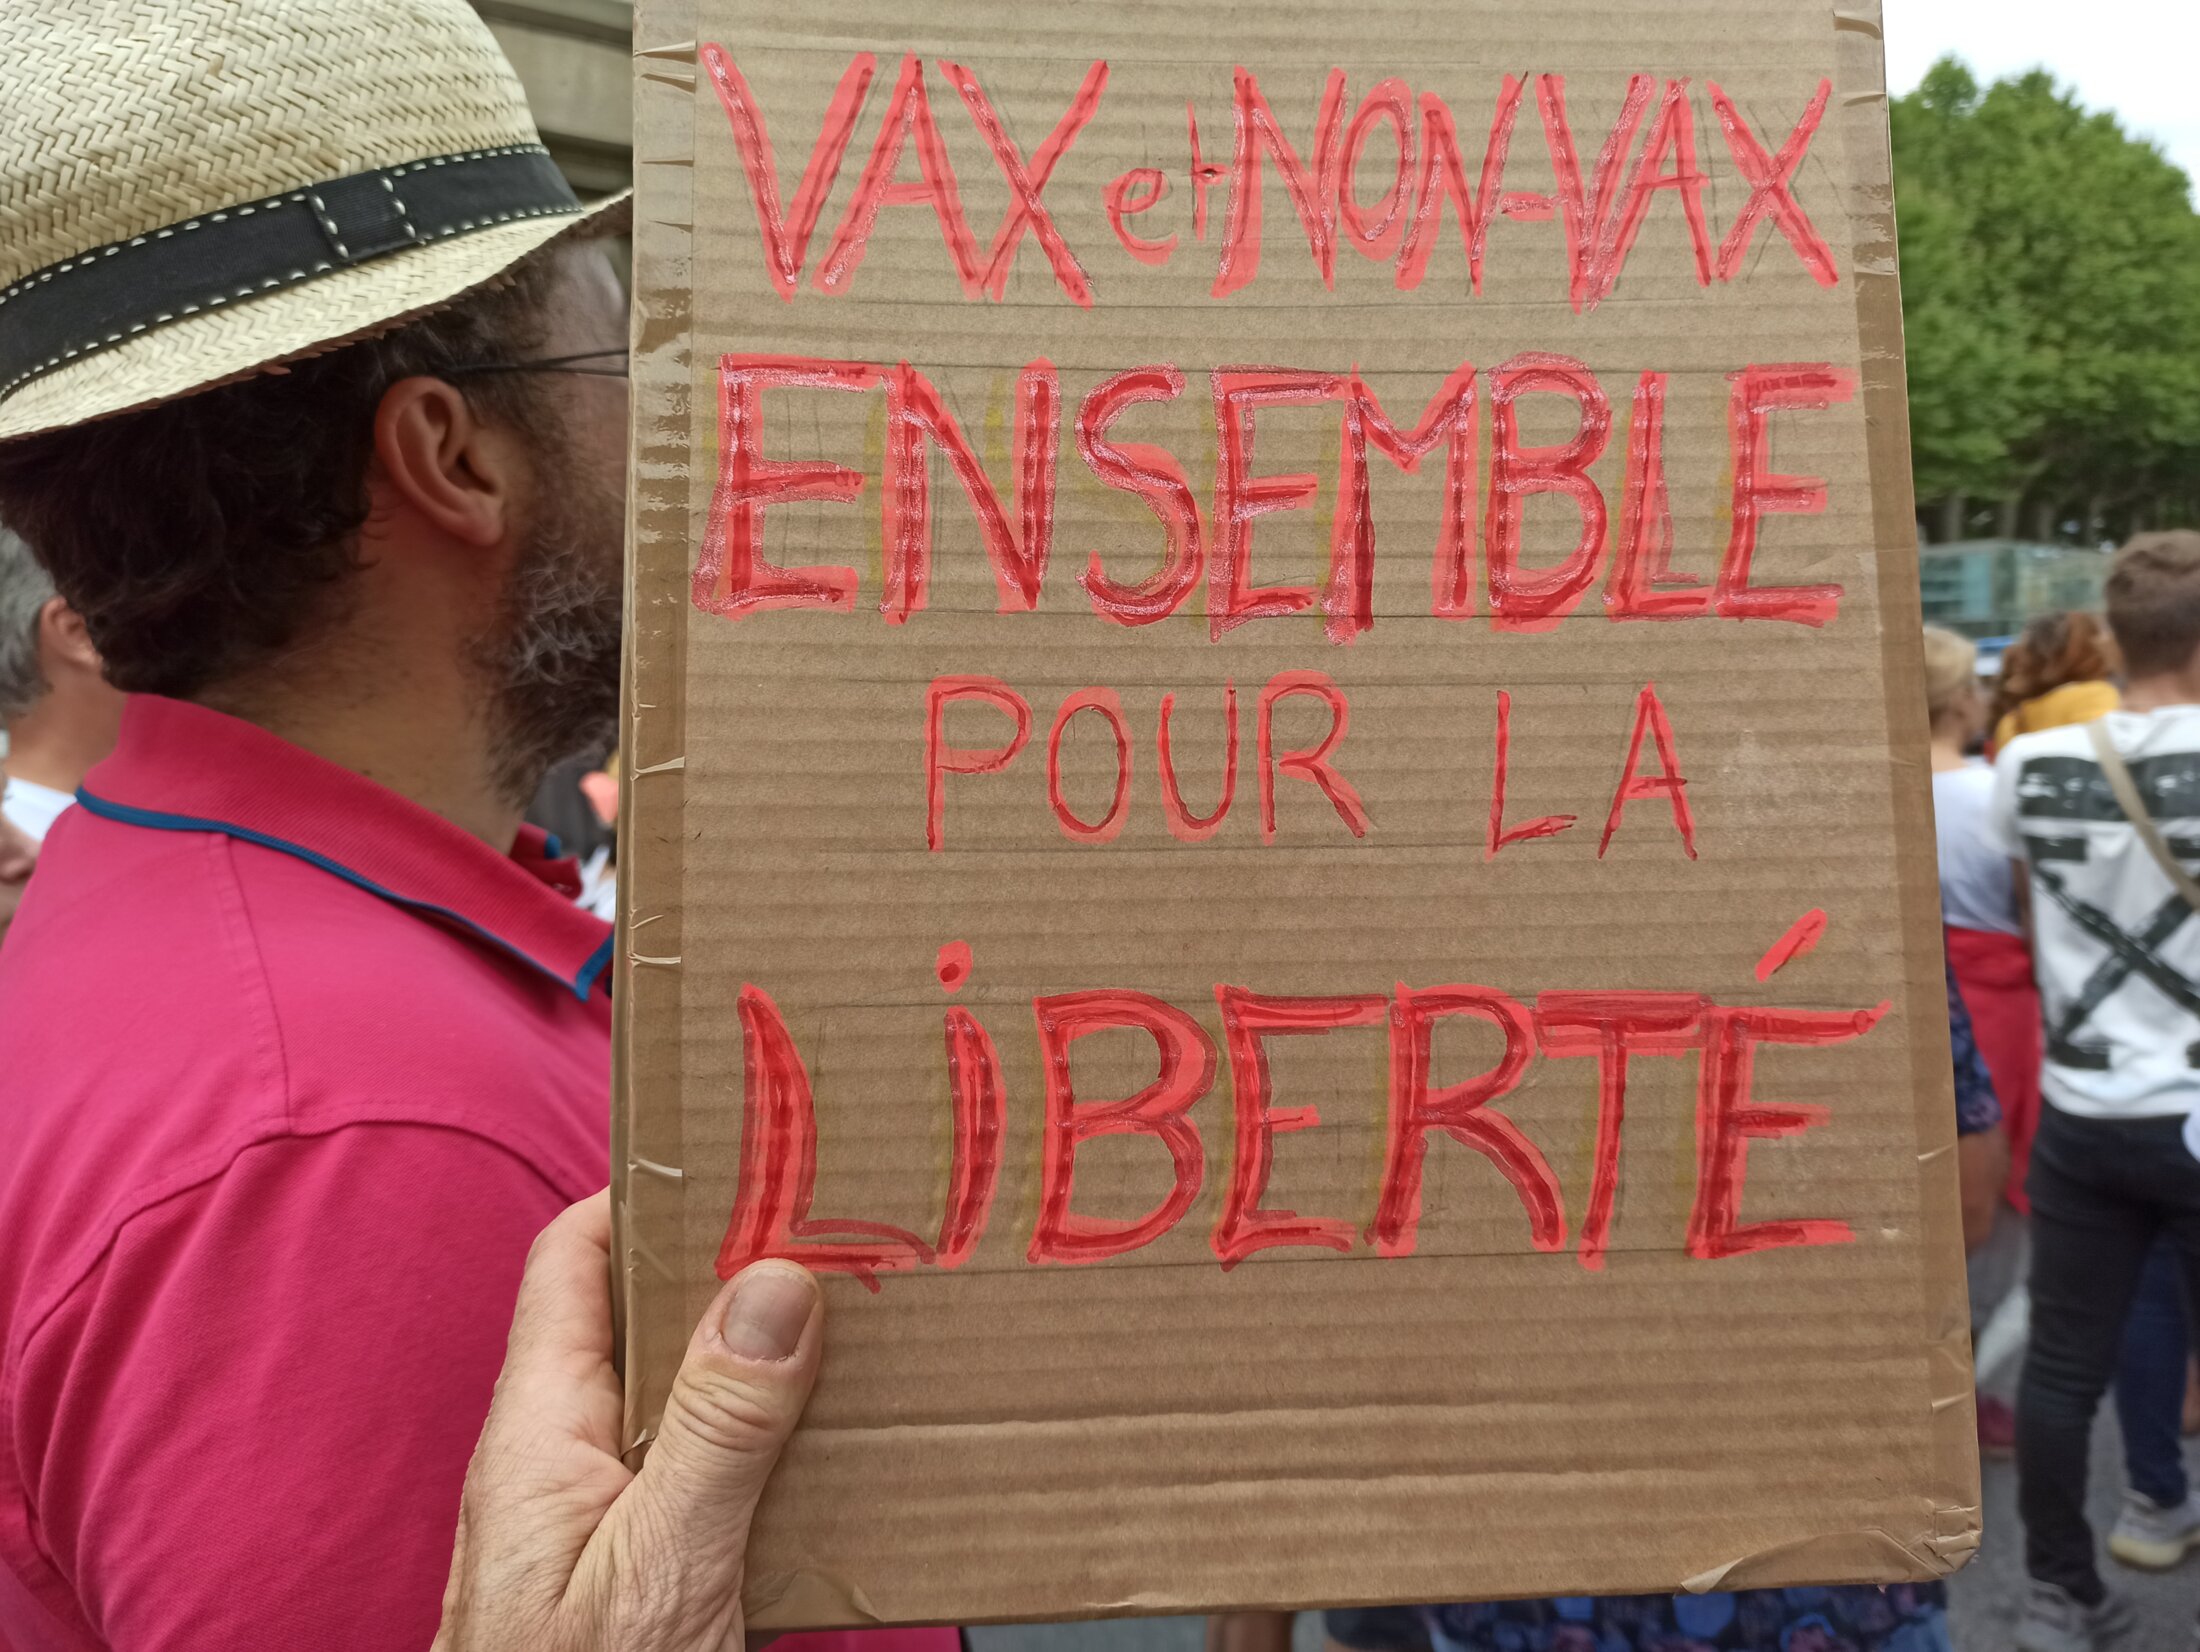 VAX et NON-VAX
ENSEMBLE
POUR LA
LiBERTÉ